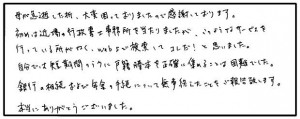 母が急逝した折、大変困っておりましたので感謝しております。
初めは近場の行政書士事務所を当たりましたが、このようなサービスを
行っている所がなく、webで検索して コレだ！と思いました。
自分では短期間のうちに戸籍謄本を正確に集めることは困難でした。
銀行の相続および年金の手続にて無事終了したことをご報告致します。
本当にありがとうございました。